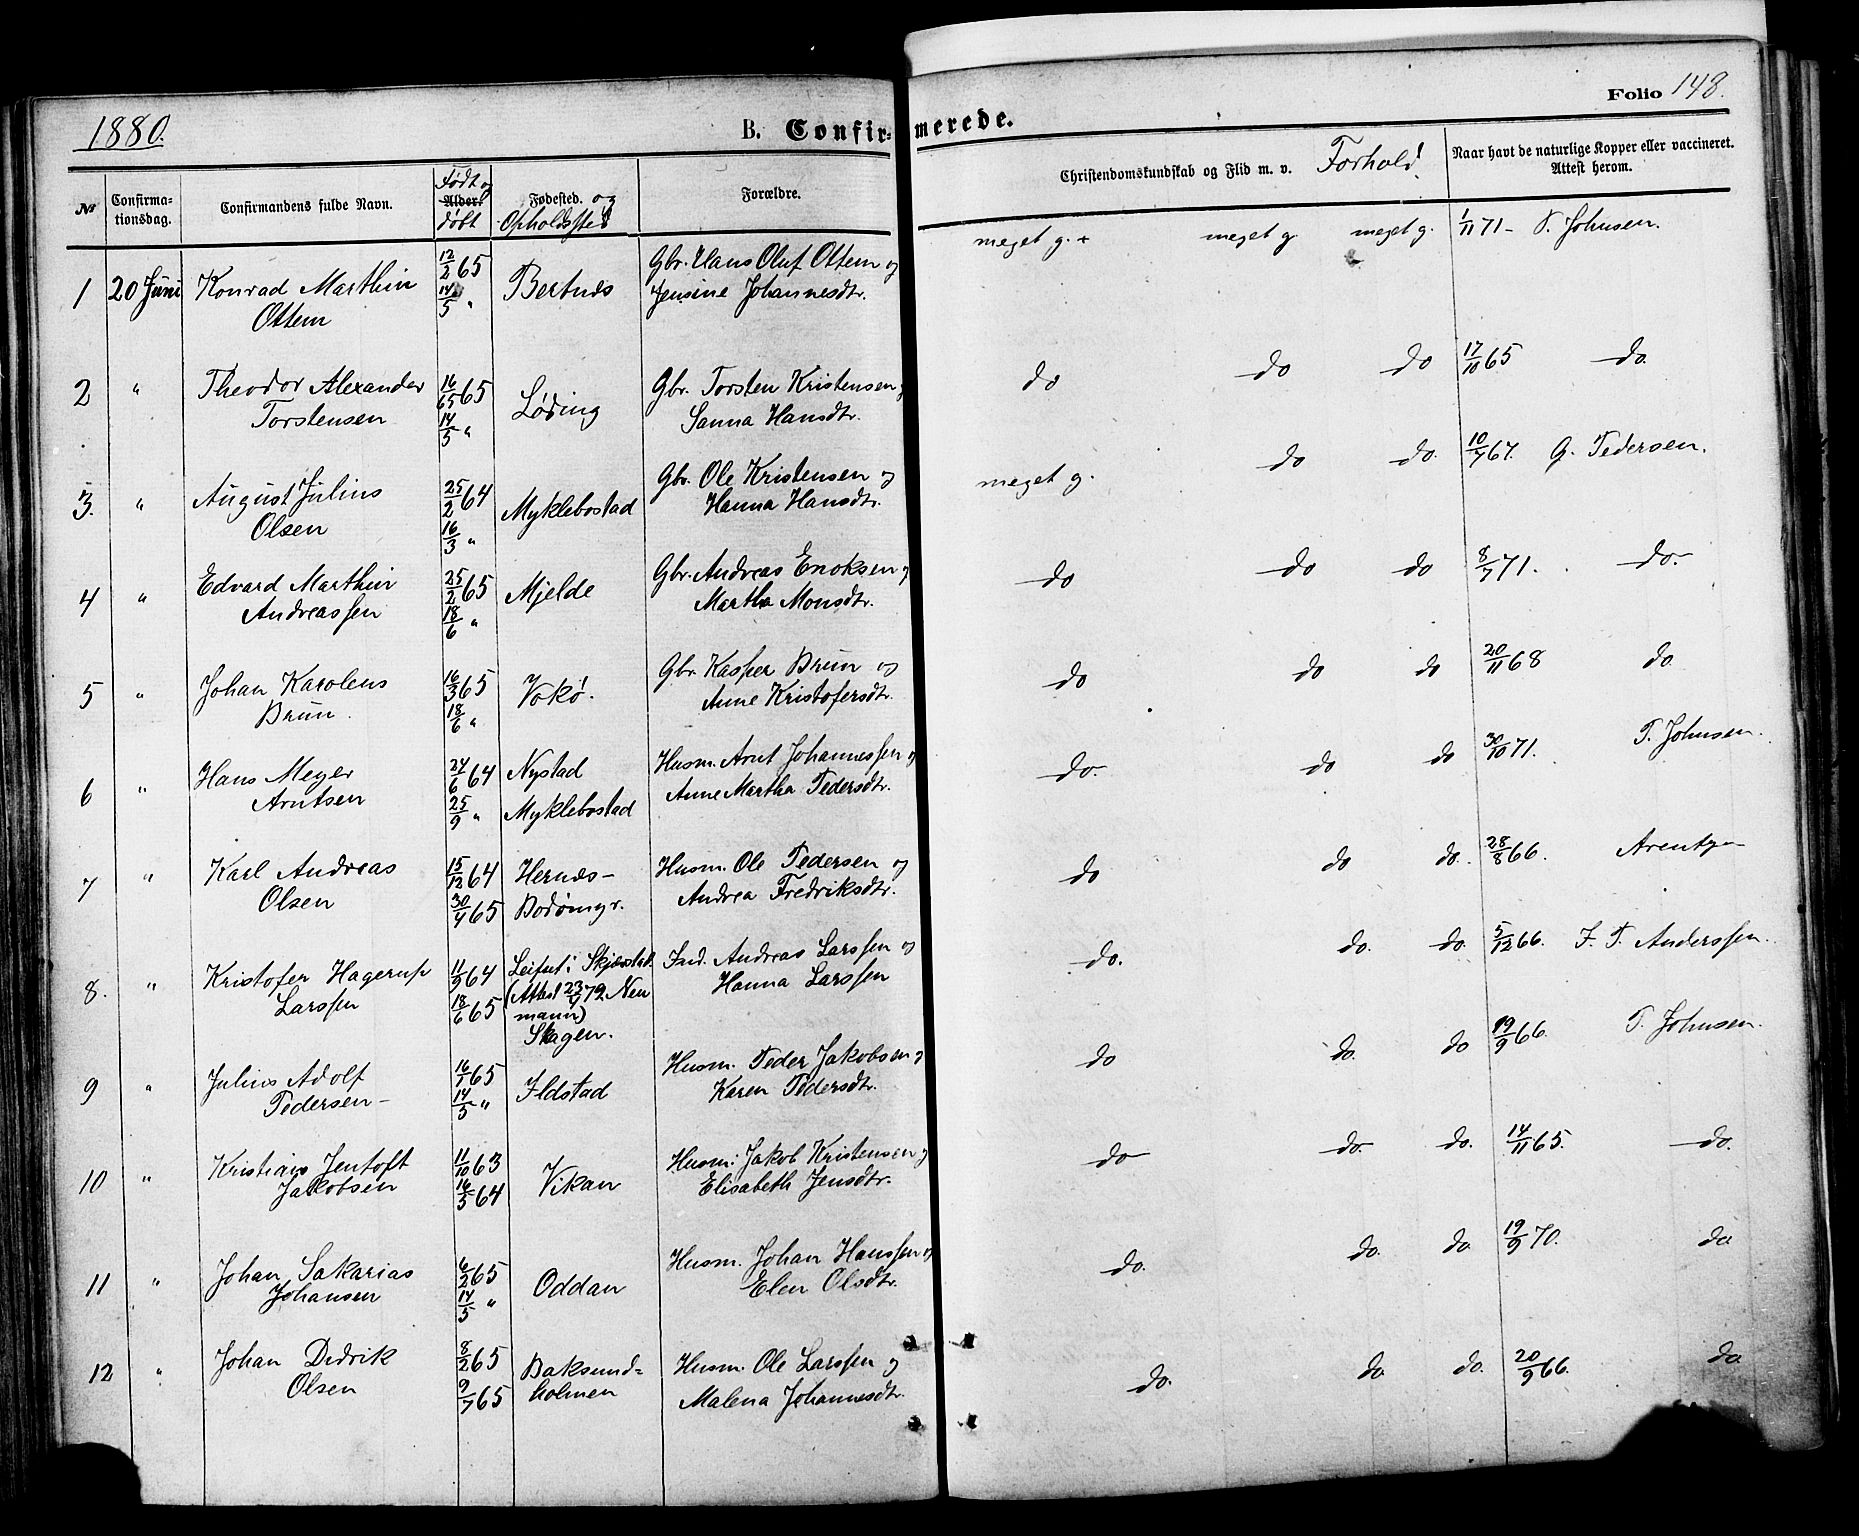 1880.
B. Confirmerede.
Folio 148.
No
Confirmationsdag.
Confirmandens fulde Navn.
Født og
Alder.
døbt
Fødested. og
Opholdssted
Forældre.
Christendomskundskab og Flid m. v. Forhold.
Naar havt de naturlige Kopper eller vaccineret.
Attest herom.
1 20 Juni Konrad Marthin Ottem 12/2 65 14/5 " Bertnes Gbr. Hans Oluf Ottem og Jensine Johannesdtr. meget g. + meget g. meget g. 1/11 71 - P. Johnsen.
2 " Theodor Alexander Torstensen 16/65 65 14/5 " Løding Gbr. Torsten Kristensen og Sanna Hansdtr. do do do 17/10 65 do.
3. " August Julius Olsen 25/2 64 16/3 " Myklebostad Gbr. Ole Kristensen og Hanna Hansdtr. meget g. do do. 10/7 67. G. Pedersen.
4 " Edvard Marthin Andreassen 25/2 65 18/6 " Mjelde Gbr. Andreas Enoksen og Martha Monsdtr. do do do 8/7 71. do.
5 " Johan Karolens Brun. 16/3 65 18/6 " Vokø. Gbr. Kasper Brun og Anne Kristofersdtr. do do do 20/11 68 do
6 " Hans Meyer Arntsen 24/6 64 25/9 " Nystad Myklebostad Husm. Arnt Johannessen og Anne Martha Pedersdtr. do. do do 30/10 71. P. Johnsen.
7 " Karl Andreas Olsen 15/12 64 30/4 65 Hernes - Bodømyr. Husm. Ole Pedersen og Andrea Fredriksdtr. do do do. 28/8 66.
8. " Kristofer Hagerup Larssen 11/9 64 18/6 65 Leifset i Skjerstad. (Attest 23/4 72 Neumann) Skagen. Ind. Andreas Larssen og Hanna Larssen do. do. do. 5/12 66. J. P. Anderssen.
9 " Julius Adolf Pedersen - 16/1 65 14/5 " Ildstad Husm. Peder Jakobsen og Karen Pedersdtr. do do. do 19/9 66. P. Johnsen.
10 " Kristians Jentoft Jakobsen 11/10 63 16/5 64 Vikan Husm. Jakob Kristensen og Elisabeth Jensdtr. do do. do. 14/11 65. do.
11 " Johan Sakarias Johansen 6/2 65 14/5 " Oddan Husm. Johan Hanssen og Elen Olsdtr. do. do. do. 19/9 70. do
12 " Johan Didrik Olsen 8/2 65 9/7 65 Baksundholmen Husm. Ole Larssen og Malena Johannesdtr. do. do. do. 20/9 66. do